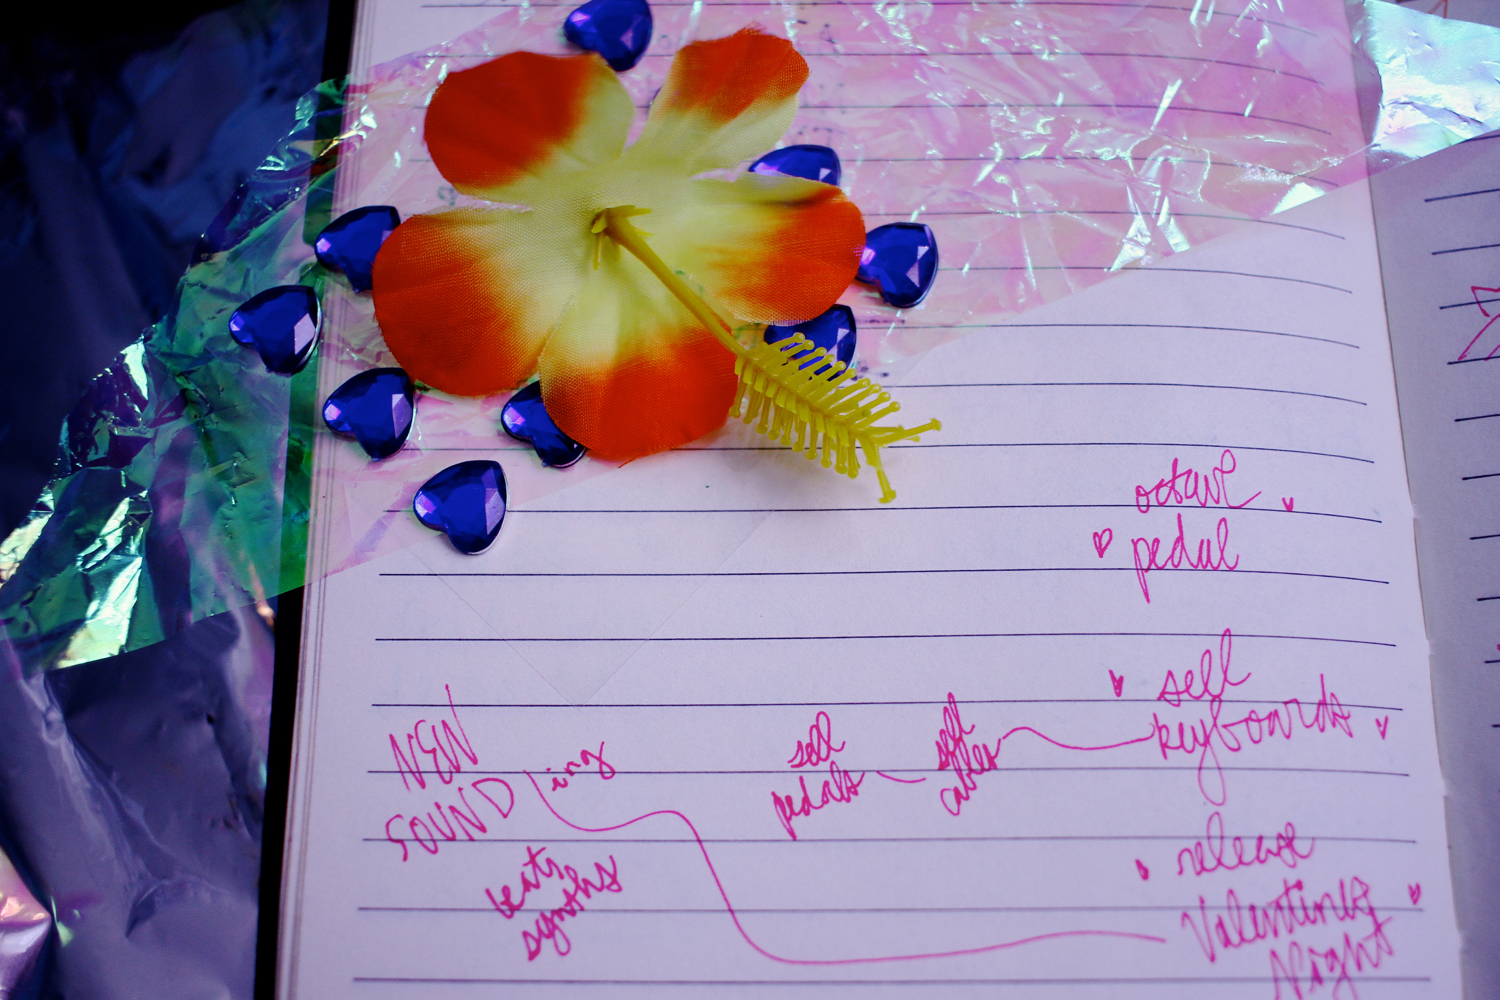 octave
pedal
sell
keyboards
sell
cables
sell
pedals
NEW
SOUND
ing
beats
synths
release
Valentines
Night